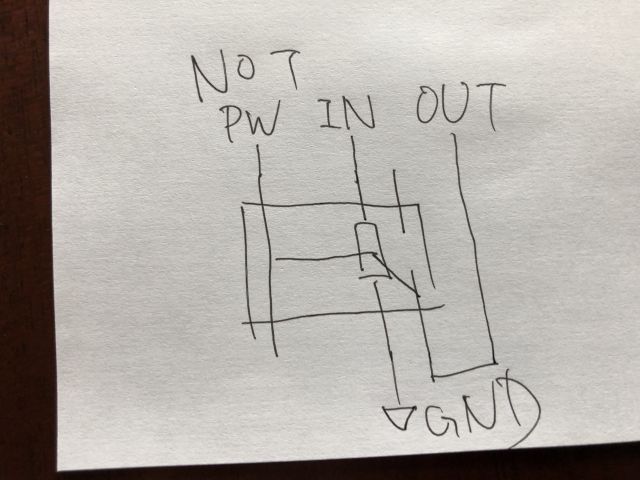 NOT
PW IN OUT
GND